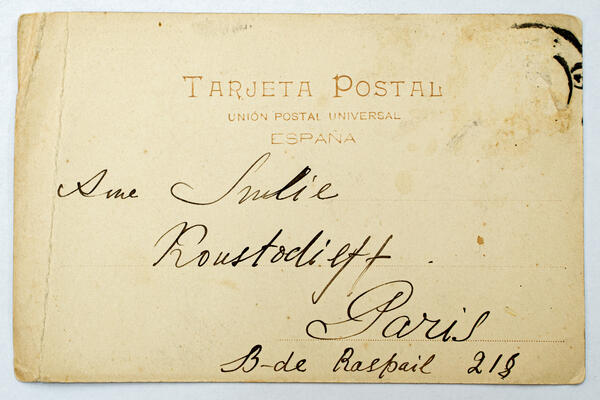 TARJETA POSTAL
UNIÓN POSTAL UNIVERSAL
ESPAÑA
Koustodieff
Paris
B-de Raspail 218